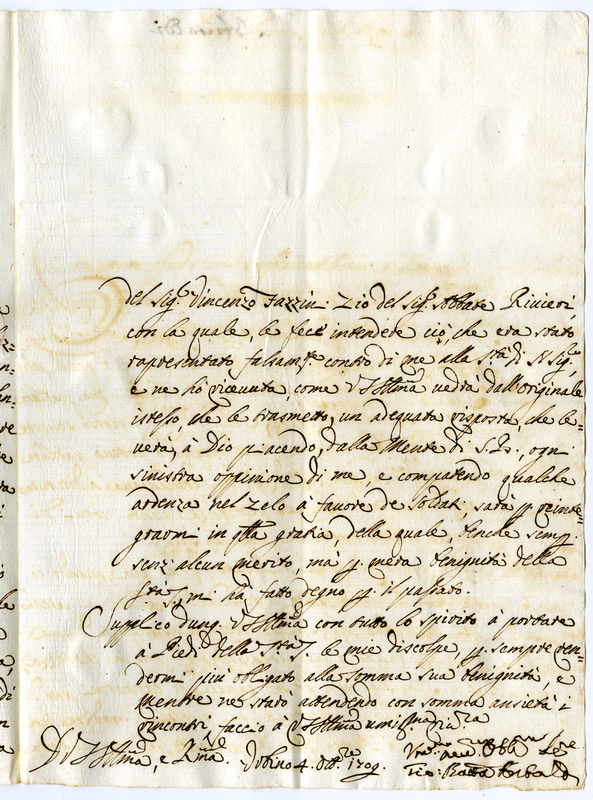 del Sig.r Vincenzo Fazzini Zio del Sig.r Abbate Rivieri,
con la quale, le fece intendere ciò, che era stato
rapresentato falsam.te contro di me alla S.tà di N. Sig.re
e ne hò ricevuta, come V.S. Ill.ma vedrà dall'originale
istesso, che le trasmetto, un adequata risposta, che le-
verà, à Dio piacendo, dalla Mente di S. B., ogni
sinistra oppinione di me, e compatendo qualche
ardenza nel zelo à favore de Soldati, sarà p reinte-
grarmi in q.sta gratia, della quale, benche semp.
senz'alcun merito, mà p mera benignità della
S.tà S. mi hà fatto degno p il passato.
Supplico dunq. V.S. Ill.ma con tutto lo spirito à portare
à Piedi della S.tà S. le mie discolpe, p sempre ren-
dermi più obligato alla somma sua benignità, e
mentre ne starò attendendo con somma ansietà i
rincontri faccio à V.S. Ill.ma umiliss.ma riv.za
D V.S. Ill.ma, e R.ma Urbino 4. Ott.re 1709.